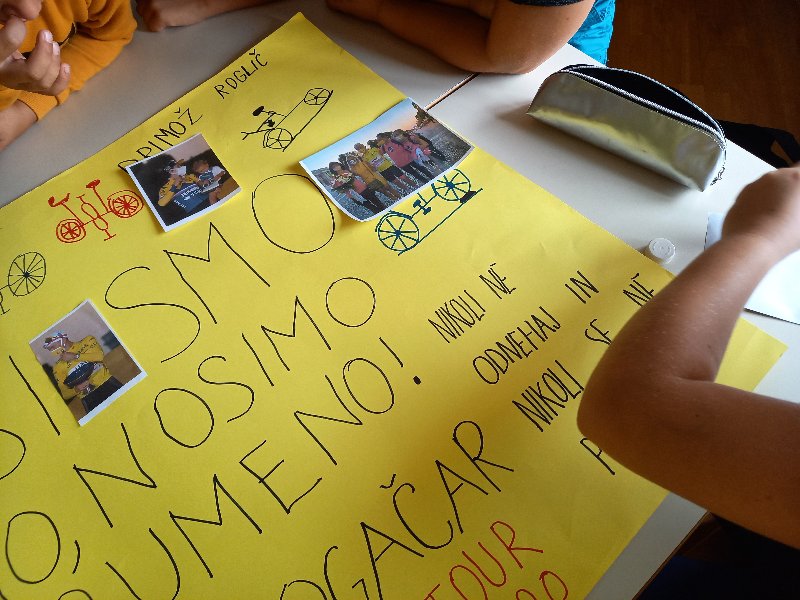 PRIMOŽ ROGLIČ
SI SMO
O, NOSIMO
UMENO!
NIKOLI NE
ODNEHAJ IN
NIKOLI SE NE
P
OGAČAR
TOUR